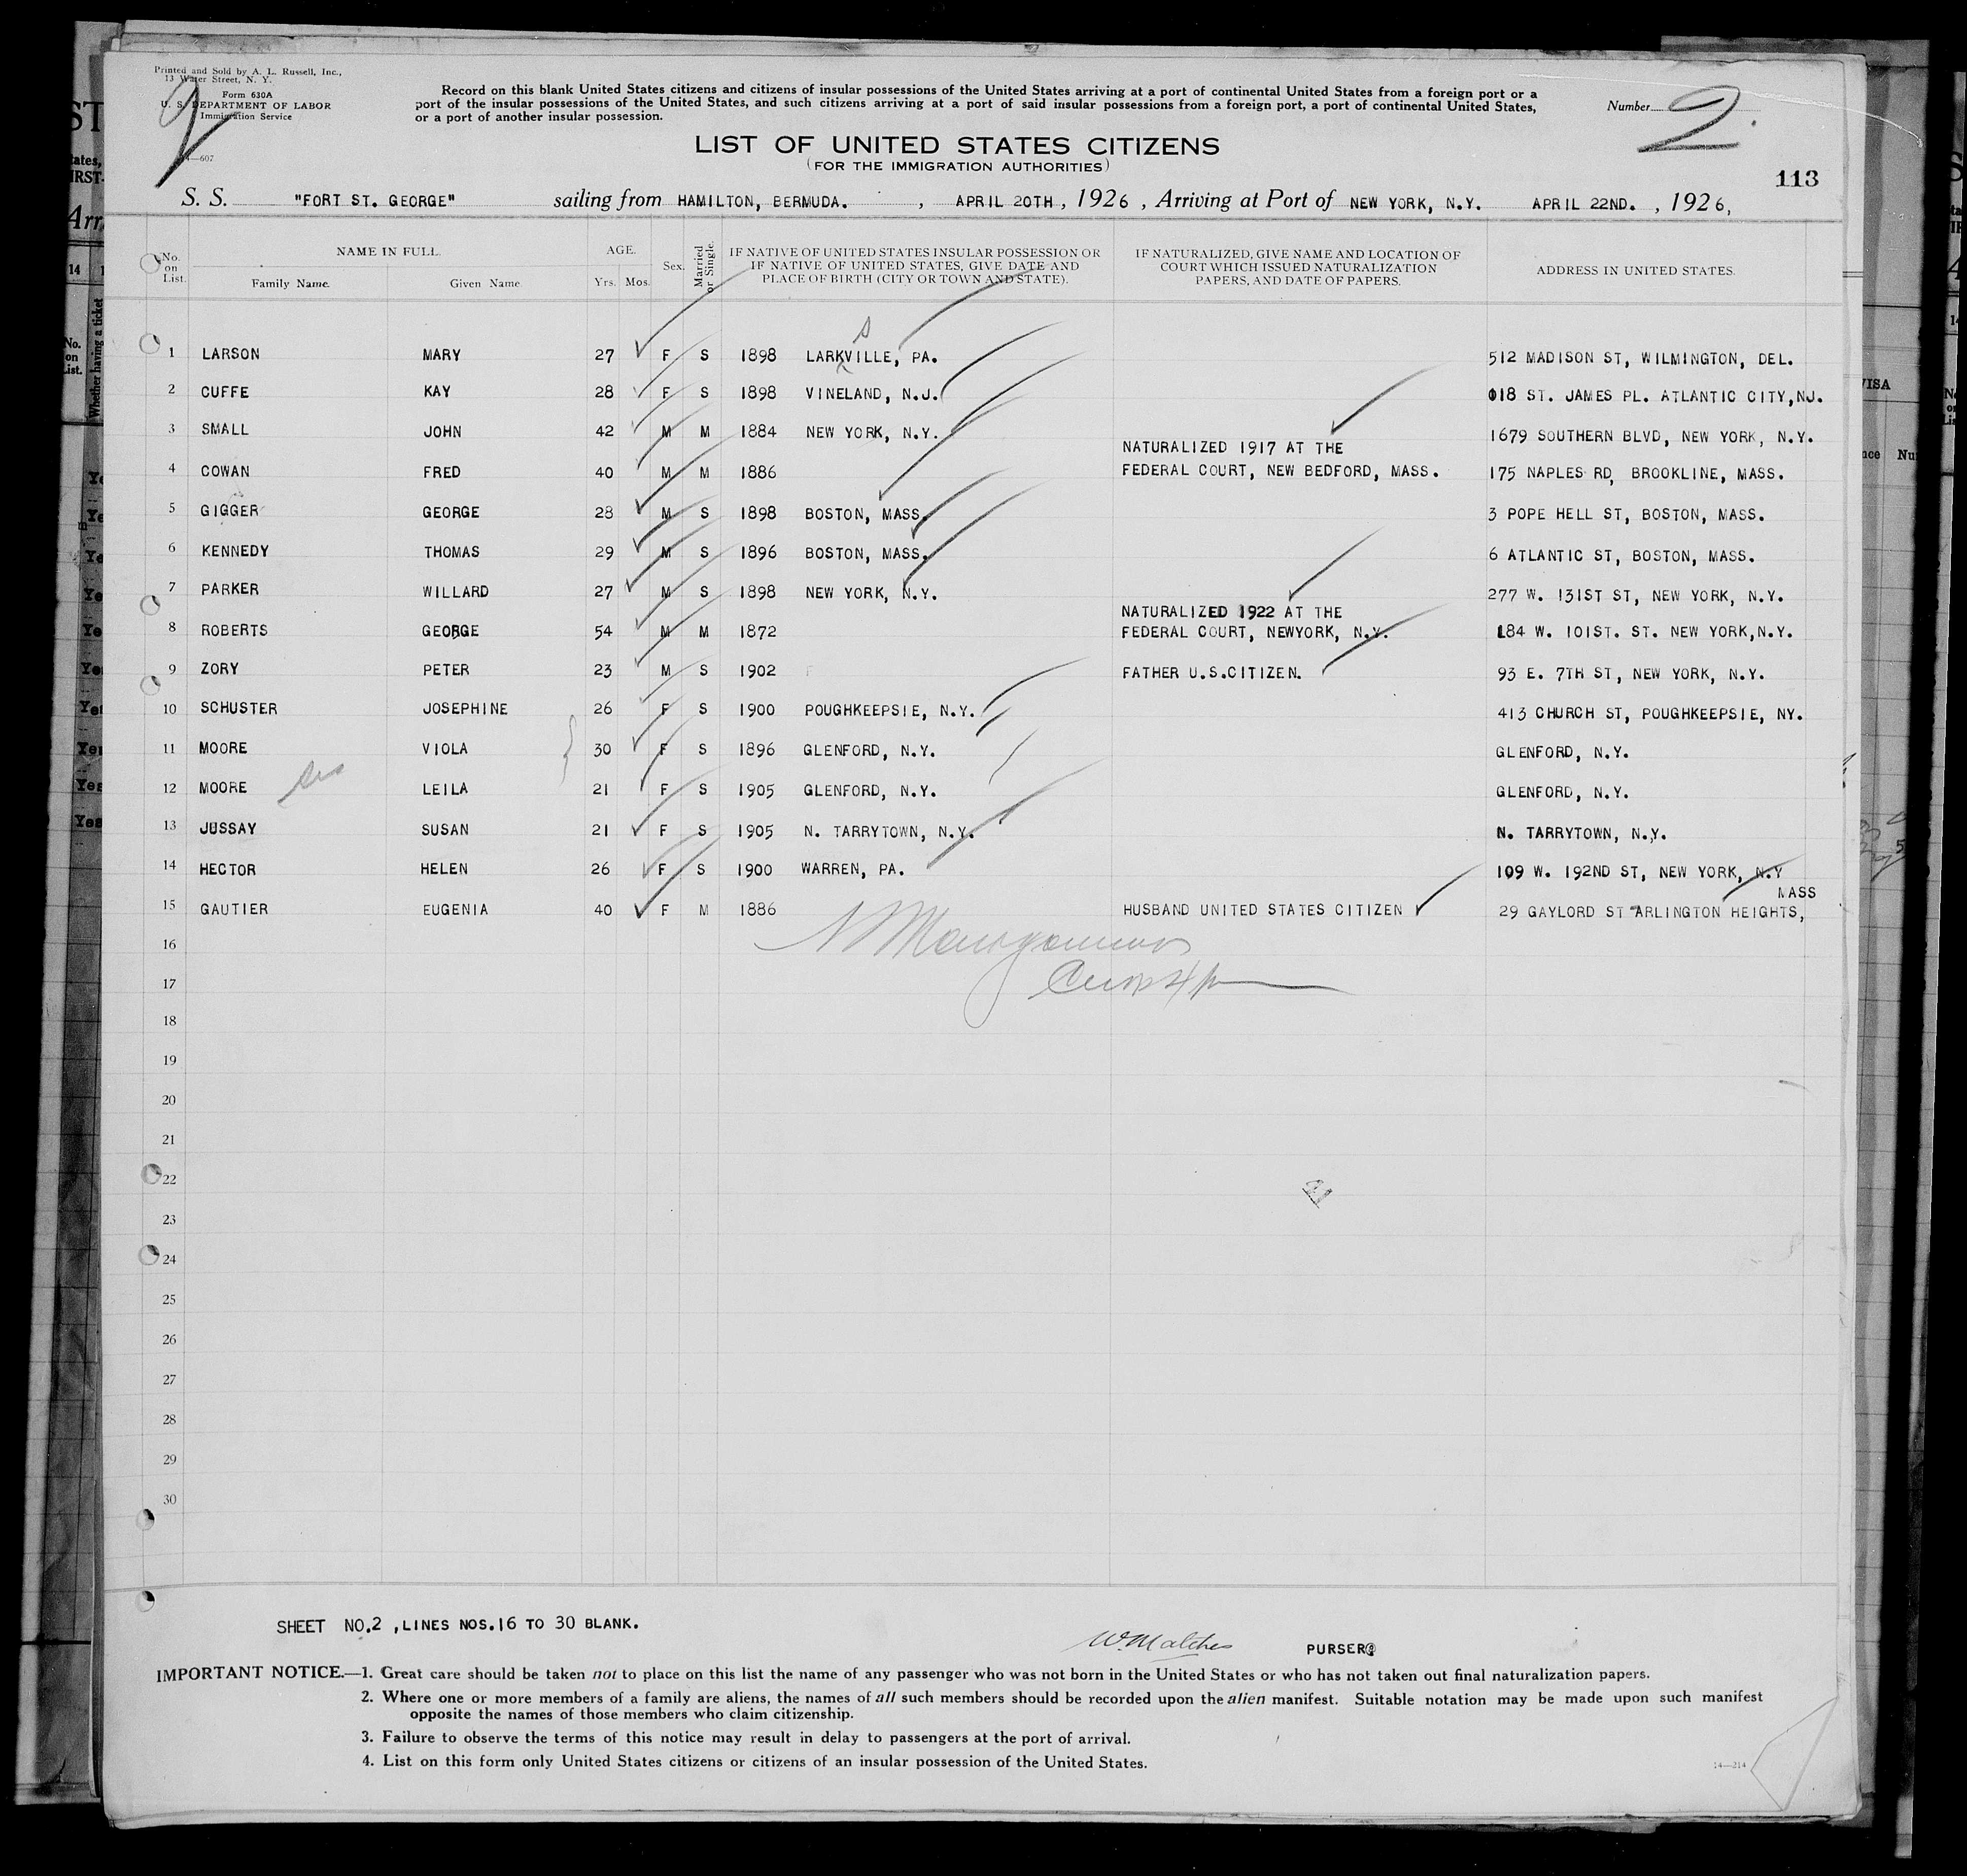 Printed and Sold by A. L. Russell, Inc.,
13 Water Street, N. Y.
Form 630A
U. S. DEPARTMENT OF LABOR
Immigration Service
14—607
Record on this blank United States citizens and citizens of insular possessions of the United States arriving at a port of continental United States from a foreign port or a
port of the insular possessions of the United States, and such citizens arriving at a port of said insular possessions from a foreign port, a port of continental United States,
or a port of another insular possession.
Number 2.
LIST OF UNITED STATES CITIZENS
(FOR THE IMMIGRATION AUTHORITIES)
113
S. S. "FORT ST. GEORGE" sailing from HAMILTON, BERMUDA. , APRIL 20TH , 1926 , Arriving at Port of NEW YORK, N.Y. APRIL 22ND. , 1926,
No. on List. NAME IN FULL. Family Name. Given Name. AGE. Yrs. Mos. Sex. Married or Single. IF NATIVE OF UNITED STATES INSULAR POSSESSION OR IF NATIVE OF UNITED STATES, GIVE DATE AND PLACE OF BIRTH (CITY OR TOWN AND STATE). IF NATURALIZED, GIVE NAME AND LOCATION OF COURT WHICH ISSUED NATURALIZATION PAPERS, AND DATE OF PAPERS. ADDRESS IN UNITED STATES.
1 LARSON MARY 27 F S 1898 LARKVILLE, PA. 512 MADISON ST, WILMINGTON, DEL.
2 CUFFE KAY 28 F S 1898 VINELAND, N.J. 018 ST. JAMES PL. ATLANTIC CITY,NJ.
3 SMALL JOHN 42 M M 1884 NEW YORK, N.Y. 1679 SOUTHERN BLVD, NEW YORK, N.Y.
NATURALIZED 1917 AT THE
4 COWAN FRED 40 M M 1886 FEDERAL COURT, NEW BEDFORD, MASS. 175 NAPLES RD, BROOKLINE, MASS.
5 GIGGER GEORGE 28 M S 1898 BOSTON, MASS. 3 POPE HELL ST, BOSTON, MASS.
6 KENNEDY THOMAS 29 M S 1896 BOSTON, MASS. 6 ATLANTIC ST, BOSTON, MASS.
7 PARKER WILLARD 27 M S 1898 NEW YORK, N.Y. 277 W. 131ST ST, NEW YORK, N.Y.
NATURALIZED 1922 AT THE
8 ROBERTS GEORGE 54 M M 1872 FEDERAL COURT, NEWYORK, N.Y. 184 W. 101ST. ST. NEW YORK,N.Y.
9 ZORY PETER 23 M S 1902 FATHER U.S.CITIZEN. 93 E. 7TH ST, NEW YORK, N.Y.
10 SCHUSTER JOSEPHINE 26 F S 1900 POUGHKEEPSIE, N.Y. 413 CHURCH ST, POUGHKEEPSIE, NY.
11 MOORE VIOLA 30 F S 1896 GLENFORD, N.Y. GLENFORD, N.Y.
12 MOORE LEILA 21 F S 1905 GLENFORD, N.Y. GLENFORD, N.Y.
13 JUSSAY SUSAN 21 F S 1905 N. TARRYTOWN, N.Y. N. TARRYTOWN, N.Y.
14 HECTOR HELEN 26 F S 1900 WARREN, PA. 109 W. 192ND ST, NEW YORK, N.Y
MASS
15 GAUTIER EUGENIA 40 F M 1886 HUSBAND UNITED STATES CITIZEN 29 GAYLORD ST ARLINGTON HEIGHTS,
16
17
18
19
20
21
22
23
24
25
26
27
28
29
30
SHEET NO.2 ,LINES NOS.16 TO 30 BLANK.
W. Matches PURSER
IMPORTANT NOTICE.—1. Great care should be taken not to place on this list the name of any passenger who was not born in the United States or who has not taken out final naturalization papers.
2. Where one or more members of a family are aliens, the names of all such members should be recorded upon the alien manifest. Suitable notation may be made upon such manifest
opposite the names of those members who claim citizenship.
3. Failure to observe the terms of this notice may result in delay to passengers at the port of arrival.
4. List on this form only United States citizens or citizens of an insular possession of the United States.
14—214